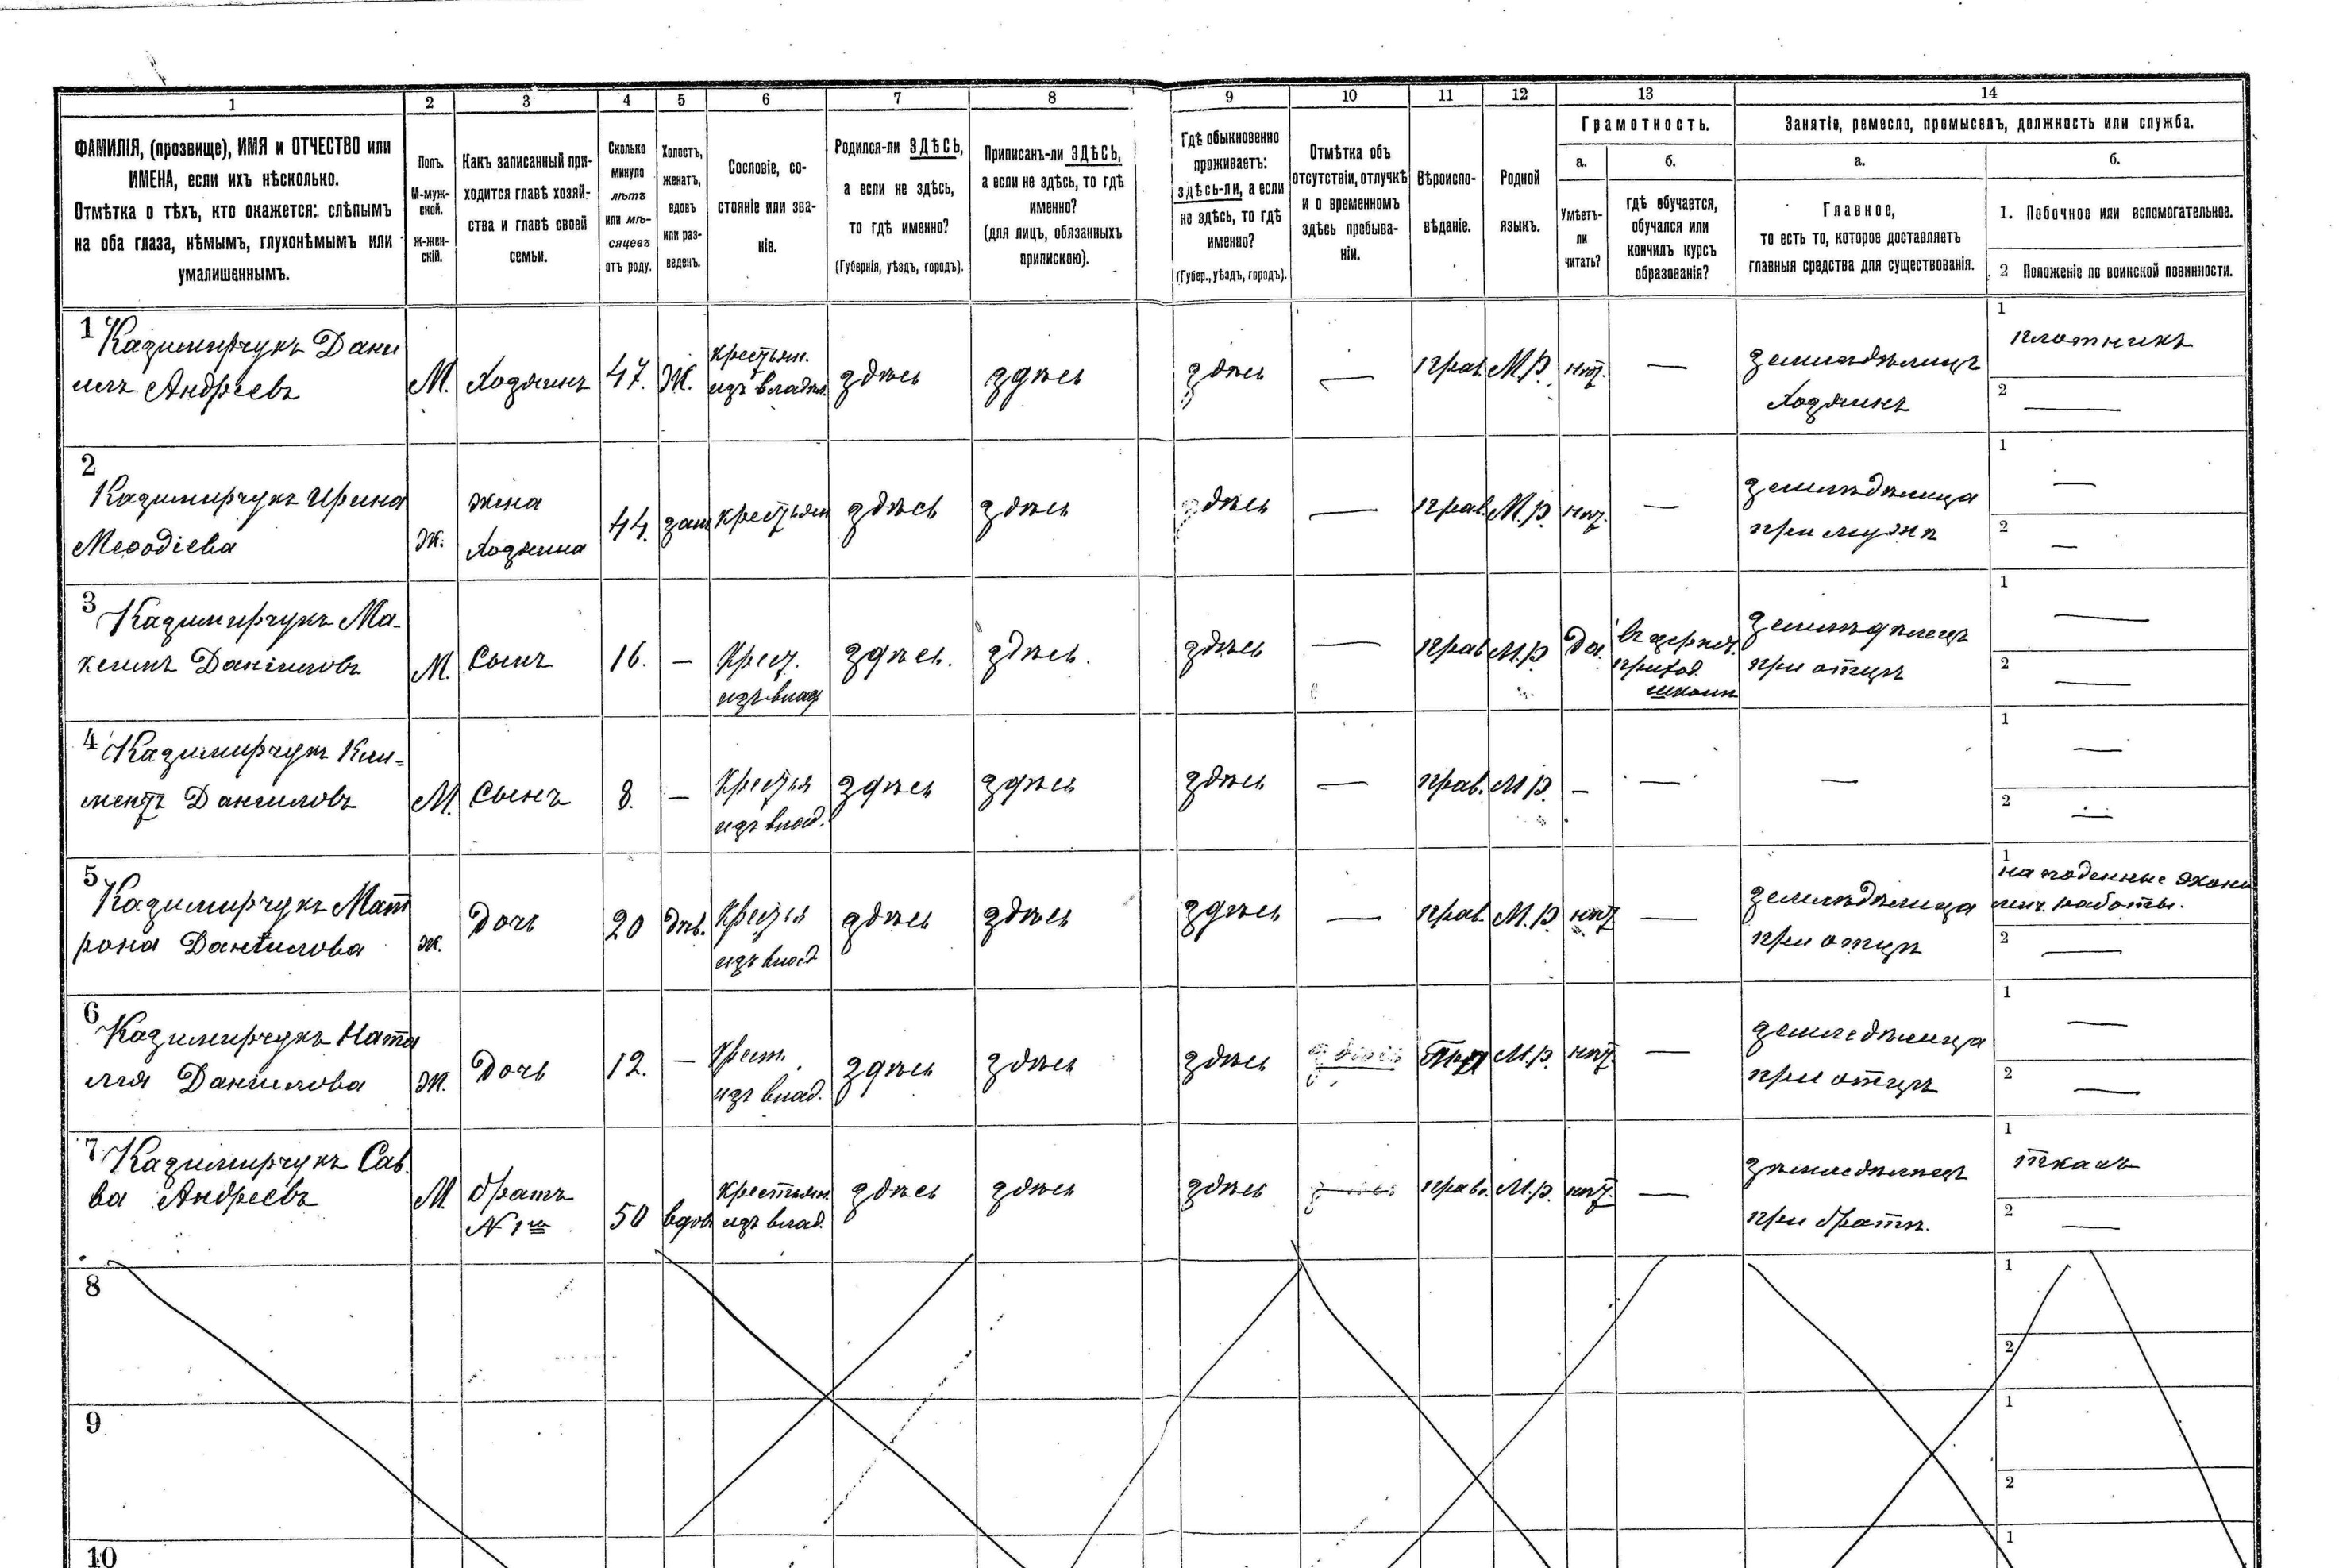 1 2 3 4 5 6 7 8 9 10 11 12 13 14
ФАМИЛІЯ, (прозвище), ИМЯ и ОТЧЕСТВО или
ИМЕНА, если ихъ нѣсколько.
Отмѣтка о тѣхъ, кто окажется: слѣпымъ
на оба глаза, нѣмымъ, глухонѣмымъ или
умалишеннымъ.
Полъ.
М-муж-
ской.
Ж-жен-
скій.
Какъ записанный при-
ходится главѣ хозяй-
ства и главѣ своей
семьи.
Сколько
минуло
лѣтъ
или мѣ-
сяцевъ
отъ роду.
Холостъ,
женатъ,
вдовъ
или раз-
веденъ.
Сословіе, со-
стояніе или зва-
ніе.
Родился-ли ЗДѢСЬ,
а если не здѣсь,
то гдѣ именно?
(Губернія, уѣздъ, городъ).
Приписанъ-ли ЗДѢСЬ,
а если не здѣсь, то гдѣ
именно?
(для лицъ, обязанныхъ
припискою).
Гдѣ обыкновенно
проживаетъ:
здѣсь-ли, а если
не здѣсь, то гдѣ
именно?
(Губер., уѣздъ, городъ).
Отмѣтка объ
отсутствіи, отлучкѣ
и о временномъ
здѣсь пребыва-
ніи.
Вѣроиспо-
вѣданіе.
Родной
языкъ.
Грамотность.
а.
Умѣетъ-
ли
читать?
б.
гдѣ обучается,
обучался или
кончилъ курсъ
образованія?
Занятіе, ремесло, промыселъ, должность или служба.
а.
Главное,
то есть то, которое доставляетъ
главныя средства для существованія.
б.
1. Побочное или вспомогательное.
2 Положеніе по воинской повинности.
1
Казимирчукъ Дани
илъ Андреевъ
М.
Хозяинъ
47.
Ж.
крестьян.
изъ владѣл.
здѣсь
здѣсь
здѣсь
—
прав.
М.р.
нѣт.
—
земледѣлецъ
Хозяинъ
1
плотникъ
2
—
2
Казимирчукъ Ирина
Меѳодіева
Ж.
жена
Хозяина
44.
зам
крестьян
здѣсь
здѣсь
здѣсь
—
прав.
М.р.
нѣт.
—
земледѣлица
при мужѣ
1
—
2
—
3
Казимирчукъ Ма-
ксимъ Даніиловъ
М.
Сынъ
16.
—
Крест.
изъ влад
здѣсь.
здѣсь.
здѣсь
—
прав
М.р.
Да.
въ церков.
приход.
школѣ
земледѣлецъ
при отцѣ
1
—
2
—
4
Казимирчукъ Кли-
ментъ Даниловъ
М.
Сынъ
8.
—
Крестья
изъ влад.
здѣсь
здѣсь
здѣсь
—
прав.
М.р.
—
—
—
1
—
2
—
5
Казимирчукъ Мат
рона Даніилова
Ж.
Дочь
20
дѣв.
Крестья
изъ влад
здѣсь
здѣсь
здѣсь
—
прав.
М.р.
нѣт
—
земледѣлица
при отцѣ
1
на поденные эконо
мич. работы.
2
—
6
Казимирчукъ Ната
лія Даниилова
Ж.
Дочь
12.
—
Крест.
изъ влад.
здѣсь
здѣсь
здѣсь
М.р.
нѣт.
—
земледѣлица
при отцѣ
1
—
2
—
7
Казимирчукъ Сав
ва Андреевъ
М.
братъ
№ 1го
50
вдов
крестьян.
изъ влад.
здѣсь
здѣсь
здѣсь
прав.
М.р.
нѣт.
—
земледѣлецъ
при братѣ.
1
ткачъ
2
—
8
1
2
9
1
2
10
1